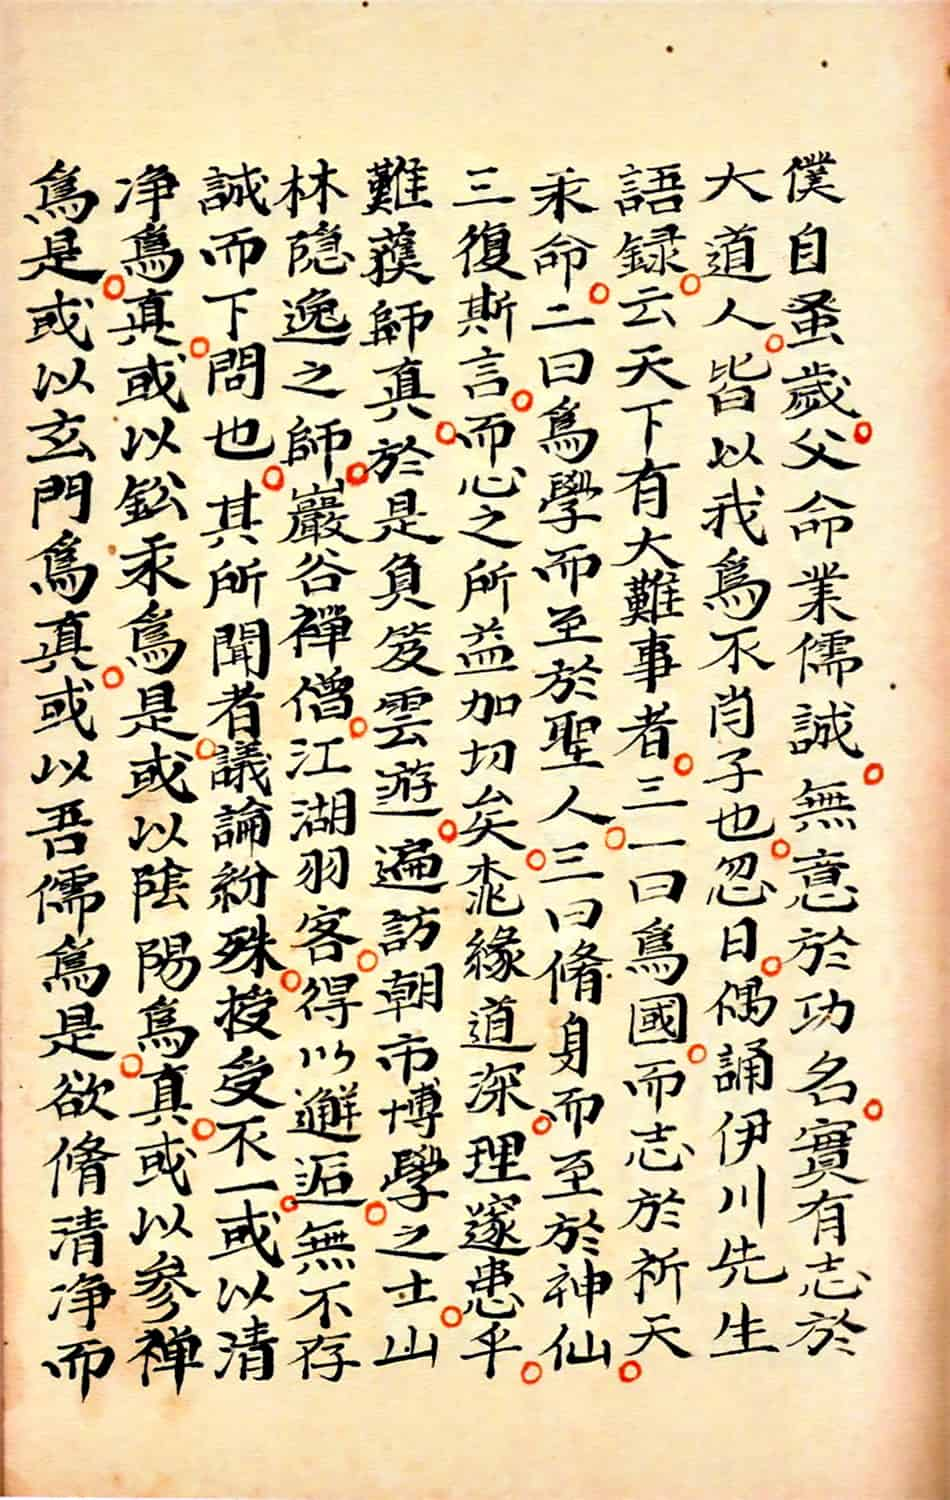 僕自蚤歲父命業儒誠無意於功名實有志於
大道人皆以我爲不肖子也忽日偶誦伊川先生
語録云天下有大難事者三一曰爲國而志於祈天
永命二曰爲學而至於聖人三曰脩身而至於神仙
三復斯言而心之所益加切矣柰緣道深理邃患乎
難蔟師真於是負笈雲遊遍訪朝市博學之士山
林隠逸之師巖谷禅僧江湖羽客得以邂逅無不存
誠而下問也其所聞者議論紛殊授受不一或以清
净爲真或以鈆汞爲是或以陰陽爲真或以參禅
爲是或以玄門爲真或以吾儒爲是欲脩清净而